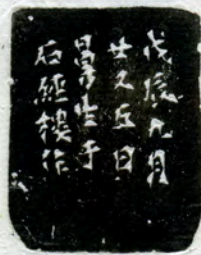 戊辰九月
廿又五日
生于
石經樓作